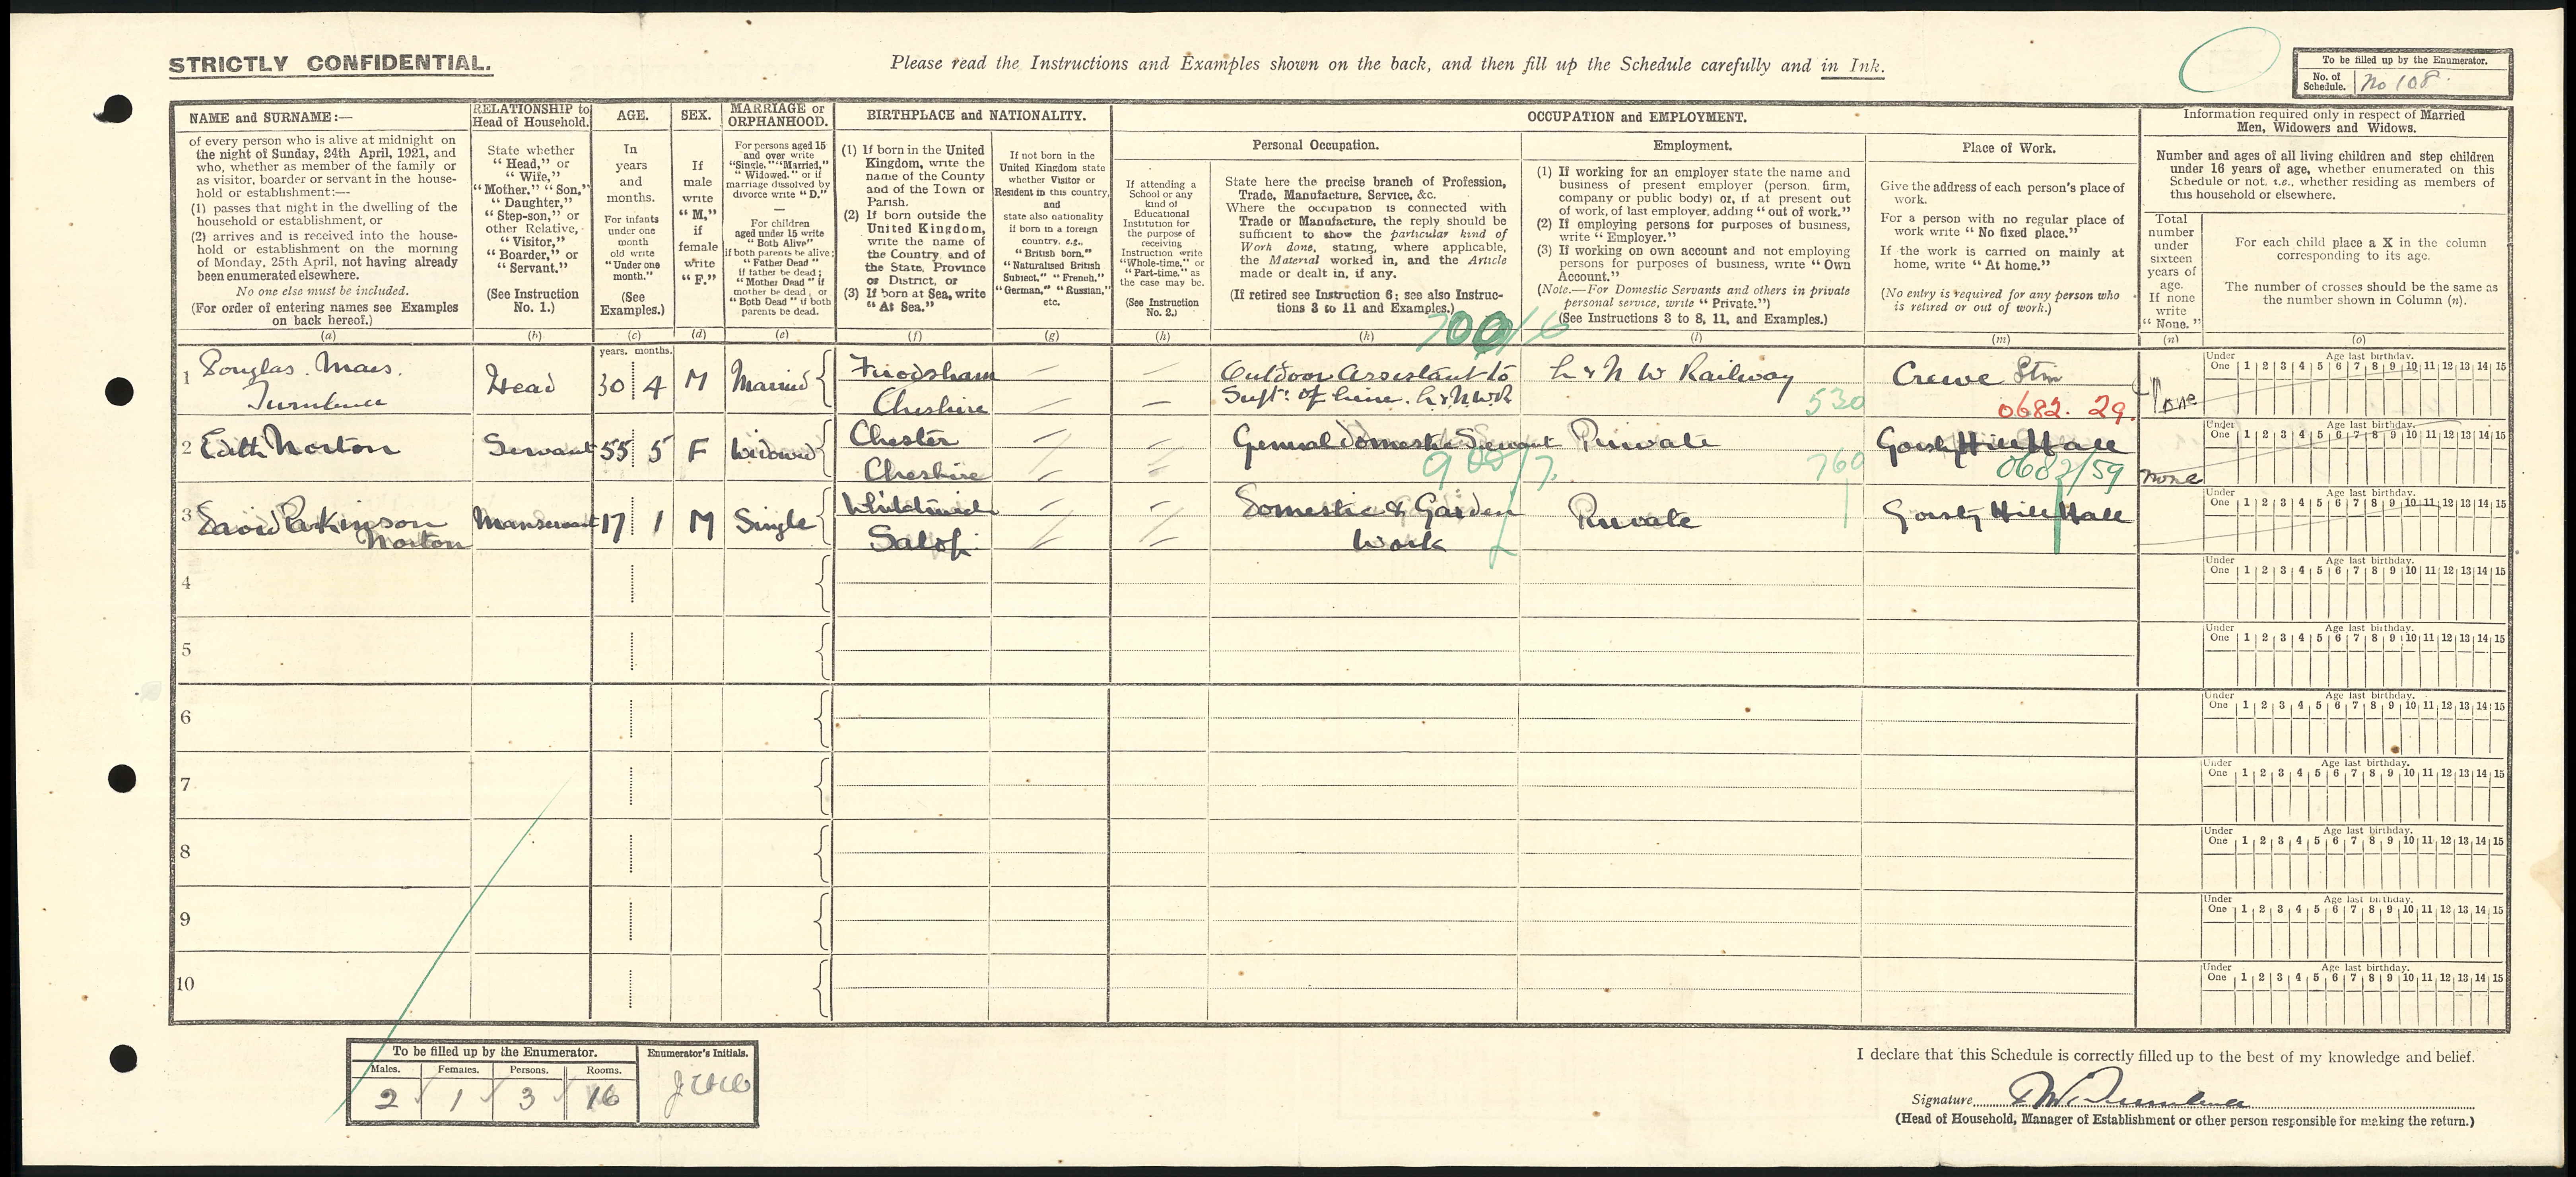 STRICTLY CONFIDENTIAL.
Please read the Instructions and Examples shown on the back, and then fill up the Schedule carefully and in Ink.
To be filled up by the Enumerator.
No. of Schedule. No 108.
NAME and SURNAME:—
of every person who is alive at midnight on
the night of Sunday, 24th April, 1921, and
who, whether as member of the family or
as visitor, boarder or servant in the house-
hold or establishment:—
(1) passes that night in the dwelling of the
household or establishment, or
(2) arrives and is received into the house-
hold or establishment on the morning
of Monday, 25th April, not having already
been enumerated elsewhere.
No one else must be included.
(For order of entering names see Examples
on back hereof.)
(a)
RELATIONSHIP to
Head of Household.
State whether
"Head," or
"Wife,"
"Mother," "Son,"
"Daughter,"
"Step-son," or
other Relative,
"Visitor,"
"Boarder," or
"Servant."
(See Instruction
No. 1.)
(b)
AGE.
In
years
and
months.
For infants
under one
month
old write
"Under one
month."
(See
Examples.)
(c)
SEX.
If
male
write
"M,"
if
female
write
"F."
(d)
MARRIAGE or
ORPHANHOOD.
For persons aged 15
and over write
"Single," "Married,"
"Widowed," or if
marriage dissolved by
divorce write "D."
For children
aged under 15 write
"Both Alive"
if both parents be alive;
"Father Dead"
if father be dead;
"Mother Dead" if
mother be dead, or
"Both Dead" if both
parents be dead.
(e)
BIRTHPLACE and NATIONALITY.
(1) If born in the United
Kingdom, write the
name of the County
and of the Town or
Parish.
(2) If born outside the
United Kingdom,
write the name of
the Country, and of
the State, Province
or District, or
(3) If born at Sea, write
"At Sea."
(f)
If not born in the
United Kingdom state
whether Visitor or
Resident in this country,
and
state also nationality
if born in a foreign
country, e.g.,
"British born,"
"Naturalised British
Subject," "French,"
"German," "Russian,"
etc.
(g)
OCCUPATION and EMPLOYMENT.
If attending a
School or any
kind of
Educational
Institution for
the purpose of
receiving
Instruction write
"Whole-time," or
"Part-time," as
the case may be.
(See Instruction
No. 2.)
(h)
Personal Occupation.
State here the precise branch of Profession,
Trade, Manufacture, Service, &c.
Where the occupation is connected with
Trade or Manufacture, the reply should be
sufficient to show the particular kind of
Work done, stating, where applicable,
the Material worked in, and the Article
made or dealt in, if any.
(If retired see Instruction 6; see also Instruc-
tions 3 to 11 and Examples.)
(k)
Employment.
(1) If working for an employer state the name and
business of present employer (person, firm,
company or public body) or, if at present out
of work, of last employer, adding "out of work."
(2) If employing persons for purposes of business,
write "Employer."
(3) If working on own account and not employing
persons for purposes of business, write "Own
Account."
(Note.—For Domestic Servants and others in private
personal service, write "Private.")
(See Instructions 3 to 8, 11, and Examples.)
(l)
Place of Work.
Give the address of each person's place of
work.
For a person with no regular place of
work write "No fixed place."
If the work is carried on mainly at
home, write "At home."
(No entry is required for any person who
is retired or out of work.)
(m)
Information required only in respect of Married
Men, Widowers and Widows.
Number and ages of all living children and step children
under 16 years of age, whether enumerated on this
Schedule or not, i.e., whether residing as members of
this household or elsewhere.
Total
number
under
sixteen
years of
age.
If none
write
"None."
(n)
For each child place a X in the column
corresponding to its age.
The number of crosses should be the same as
the number shown in Column (n).
(o)
years. months.
1 Douglas. Mars. Turnbull Head 30 4 M Married Frodsham Cheshire Outdoor Assistant to Supt. of Line. L&NWR L & N W Railway Crewe Stn None
700/16 530 0682. 29.
Under One Age last birthday. 1 2 3 4 5 6 7 8 9 10 11 12 13 14 15
2 Edith Norton Servant 55 5 F Widowed Chester Cheshire General Domestic Servant Private Gorsty Hill Hall None
900/7. 760 0682/59
Under One Age last birthday. 1 2 3 4 5 6 7 8 9 10 11 12 13 14 15
3 David Parkinson Norton Manservant 17 1 M Single Whitchurch Salop. Domestic & Garden Work Private Gorsty Hill Hall
Under One Age last birthday. 1 2 3 4 5 6 7 8 9 10 11 12 13 14 15
4 Under One Age last birthday. 1 2 3 4 5 6 7 8 9 10 11 12 13 14 15
5 Under One Age last birthday. 1 2 3 4 5 6 7 8 9 10 11 12 13 14 15
6 Under One Age last birthday. 1 2 3 4 5 6 7 8 9 10 11 12 13 14 15
7 Under One Age last birthday. 1 2 3 4 5 6 7 8 9 10 11 12 13 14 15
8 Under One Age last birthday. 1 2 3 4 5 6 7 8 9 10 11 12 13 14 15
9 Under One Age last birthday. 1 2 3 4 5 6 7 8 9 10 11 12 13 14 15
10 Under One Age last birthday. 1 2 3 4 5 6 7 8 9 10 11 12 13 14 15
To be filled up by the Enumerator. Enumerator's Initials.
Males. Females. Persons. Rooms.
2 1 3 16
I declare that this Schedule is correctly filled up to the best of my knowledge and belief.
Signature D M Turnbull
(Head of Household, Manager of Establishment or other person responsible for making the return.)